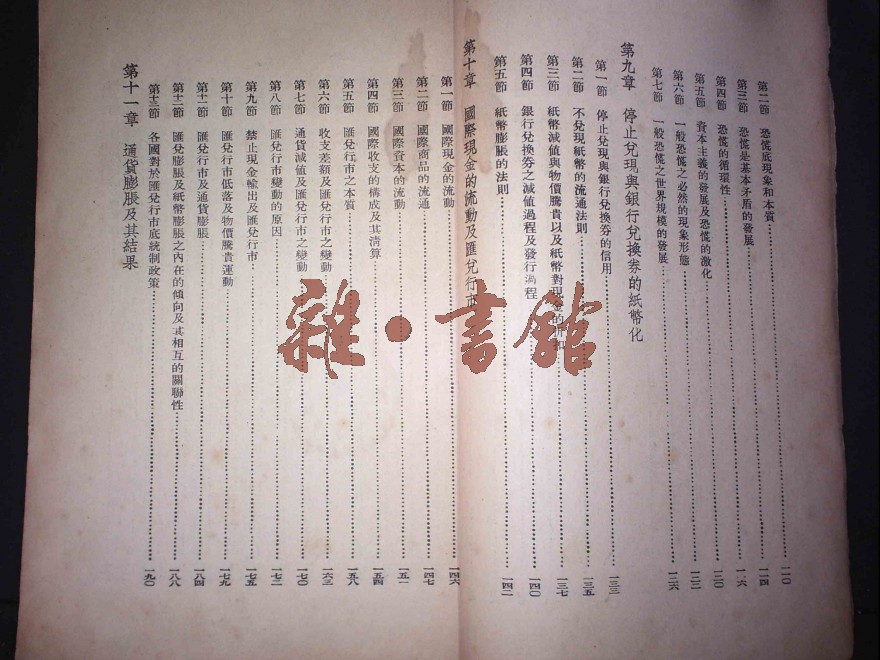 第二節 恐慌底現象和本質……一一〇
第三節 恐慌是基本矛盾的發展……一一四
第四節 恐慌的循環性……一一六
第五節 資本主義的發展及恐慌的激化……一二〇
第六節 一般恐慌之必然的現象形態……一二二
第七節 一般恐慌之世界規模的發展……一二六
第九章 停止兌現與銀行兌換券的紙幣化
第一節 停止兌現與銀行兌換券的信用……一三三
第二節 不兌現紙幣的流通法則……一三五
第三節 紙幣減値與物價騰貴以及紙幣對現金的……一三七
第四節 銀行兌換券之減値過程及發行過程……一四〇
第五節 紙幣膨脹的法則……一四二
第十章 國際現金的流動及匯兌行市
第一節 國際現金的流動……一四六
第二節 國際商品的流通……一四七
第三節 國際資本的流動……一五一
第四節 國際收支的構成及其淸算……一五四
第五節 匯兌行市之本質……一五八
第六節 收支差額及匯兌行市之變動……一六三
第七節 通貨減値及匯兌行市之變動……一七〇
第八節 匯兌行市變動的原因……一七二
第九節 禁止現金輸出及匯兌行市……一七五
第十節 匯兌行市低落及物價騰貴運動……一七九
第十一節 匯兌行市及通貨膨脹……一八四
第十二節 匯兌膨脹及紙幣膨脹之內在的傾向及其相互的關聯性……一八八
第十三節 各國對於匯兌行市底統制政策……一九〇
第十一章 通貨膨脹及其結果
雜·書館